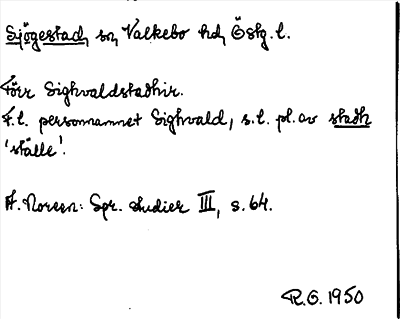 Sjögestad, sn, Valkebo hd, Östg. l.
Förr Sighvaldstadhir.
F.l. personnamnet Sighvald, s.l. pl. av stadh
'ställe'.
A. Noreen: Spr. studier III, s. 64.
R.G. 1950